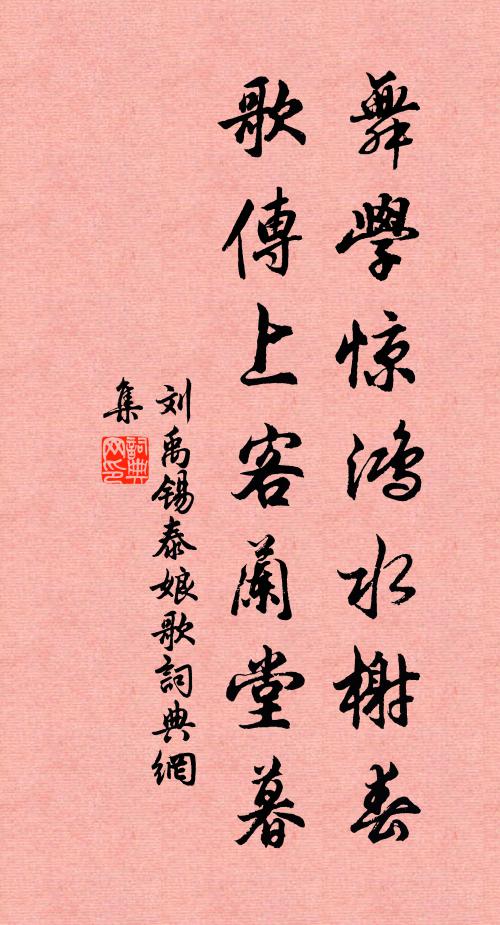 舞學惊鴻水榭春
歌傳上客蘭堂暮
刘禹锡泰娘歌詞典網
集
詞典網印